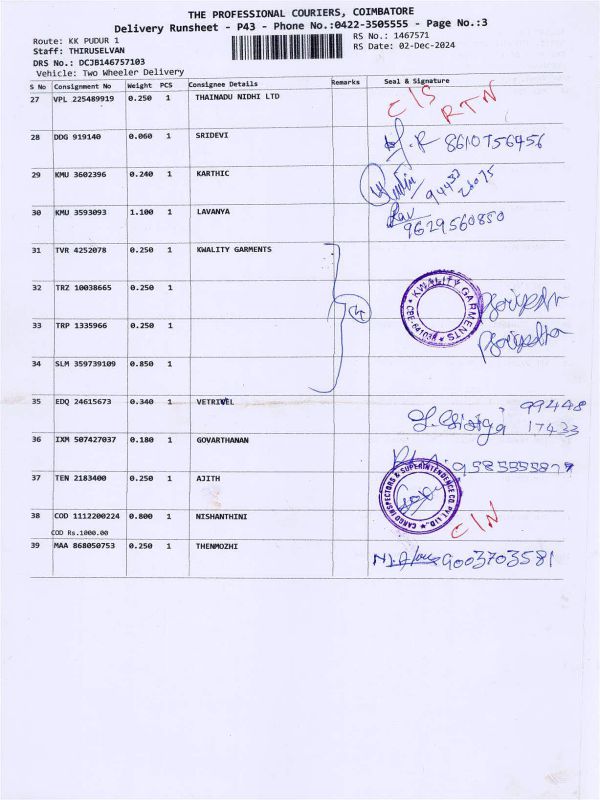 THE PROFESSIONAL COURIERS, COIMBATORE
Delivery Runsheet - P43 - Phone No.:0422-3505555 - Page No.:3
Route: KK PUDUR 1
RS No.: 1467571
Staff: THIRUSELVAN
RS Date: 02-Dec-2024
DRS No.: DCJB146757103
Vehicle: Two Wheeler Delivery
S No Consignment No Weight PCS Consignee Details Remarks Seal & Signature
27 VPL 225489919 0.250 1 THAINADU NIDHI LTD C/S RTN
28 DDG 919140 0.060 1 SRIDEVI 8610756456
29 KMU 3602396 0.240 1 KARTHIC 94433
26075
30 KMU 3593093 1.100 1 LAVANYA
9629560850
31 TVR 4252078 0.250 1 KWALITY GARMENTS
32 TRZ 10038665 0.250 1
KWALITY GARMENTS
33 TRP 1335966 0.250 1
34 SLM 359739109 0.850 1
35 EDQ 24615673 0.340 1 VETRIVEL 99448
17433
36 IXM 507427037 0.180 1 GOVARTHANAN
37 TEN 2183400 0.250 1 AJITH
CARGO INSPECTORS & SUPERINTENDENCE CO. PVT. LTD.
38 COD 1112200224 0.800 1 NISHANTHINI C/N
COD Rs.1000.00
39 MAA 868050753 0.250 1 THENMOZHI 9003703581